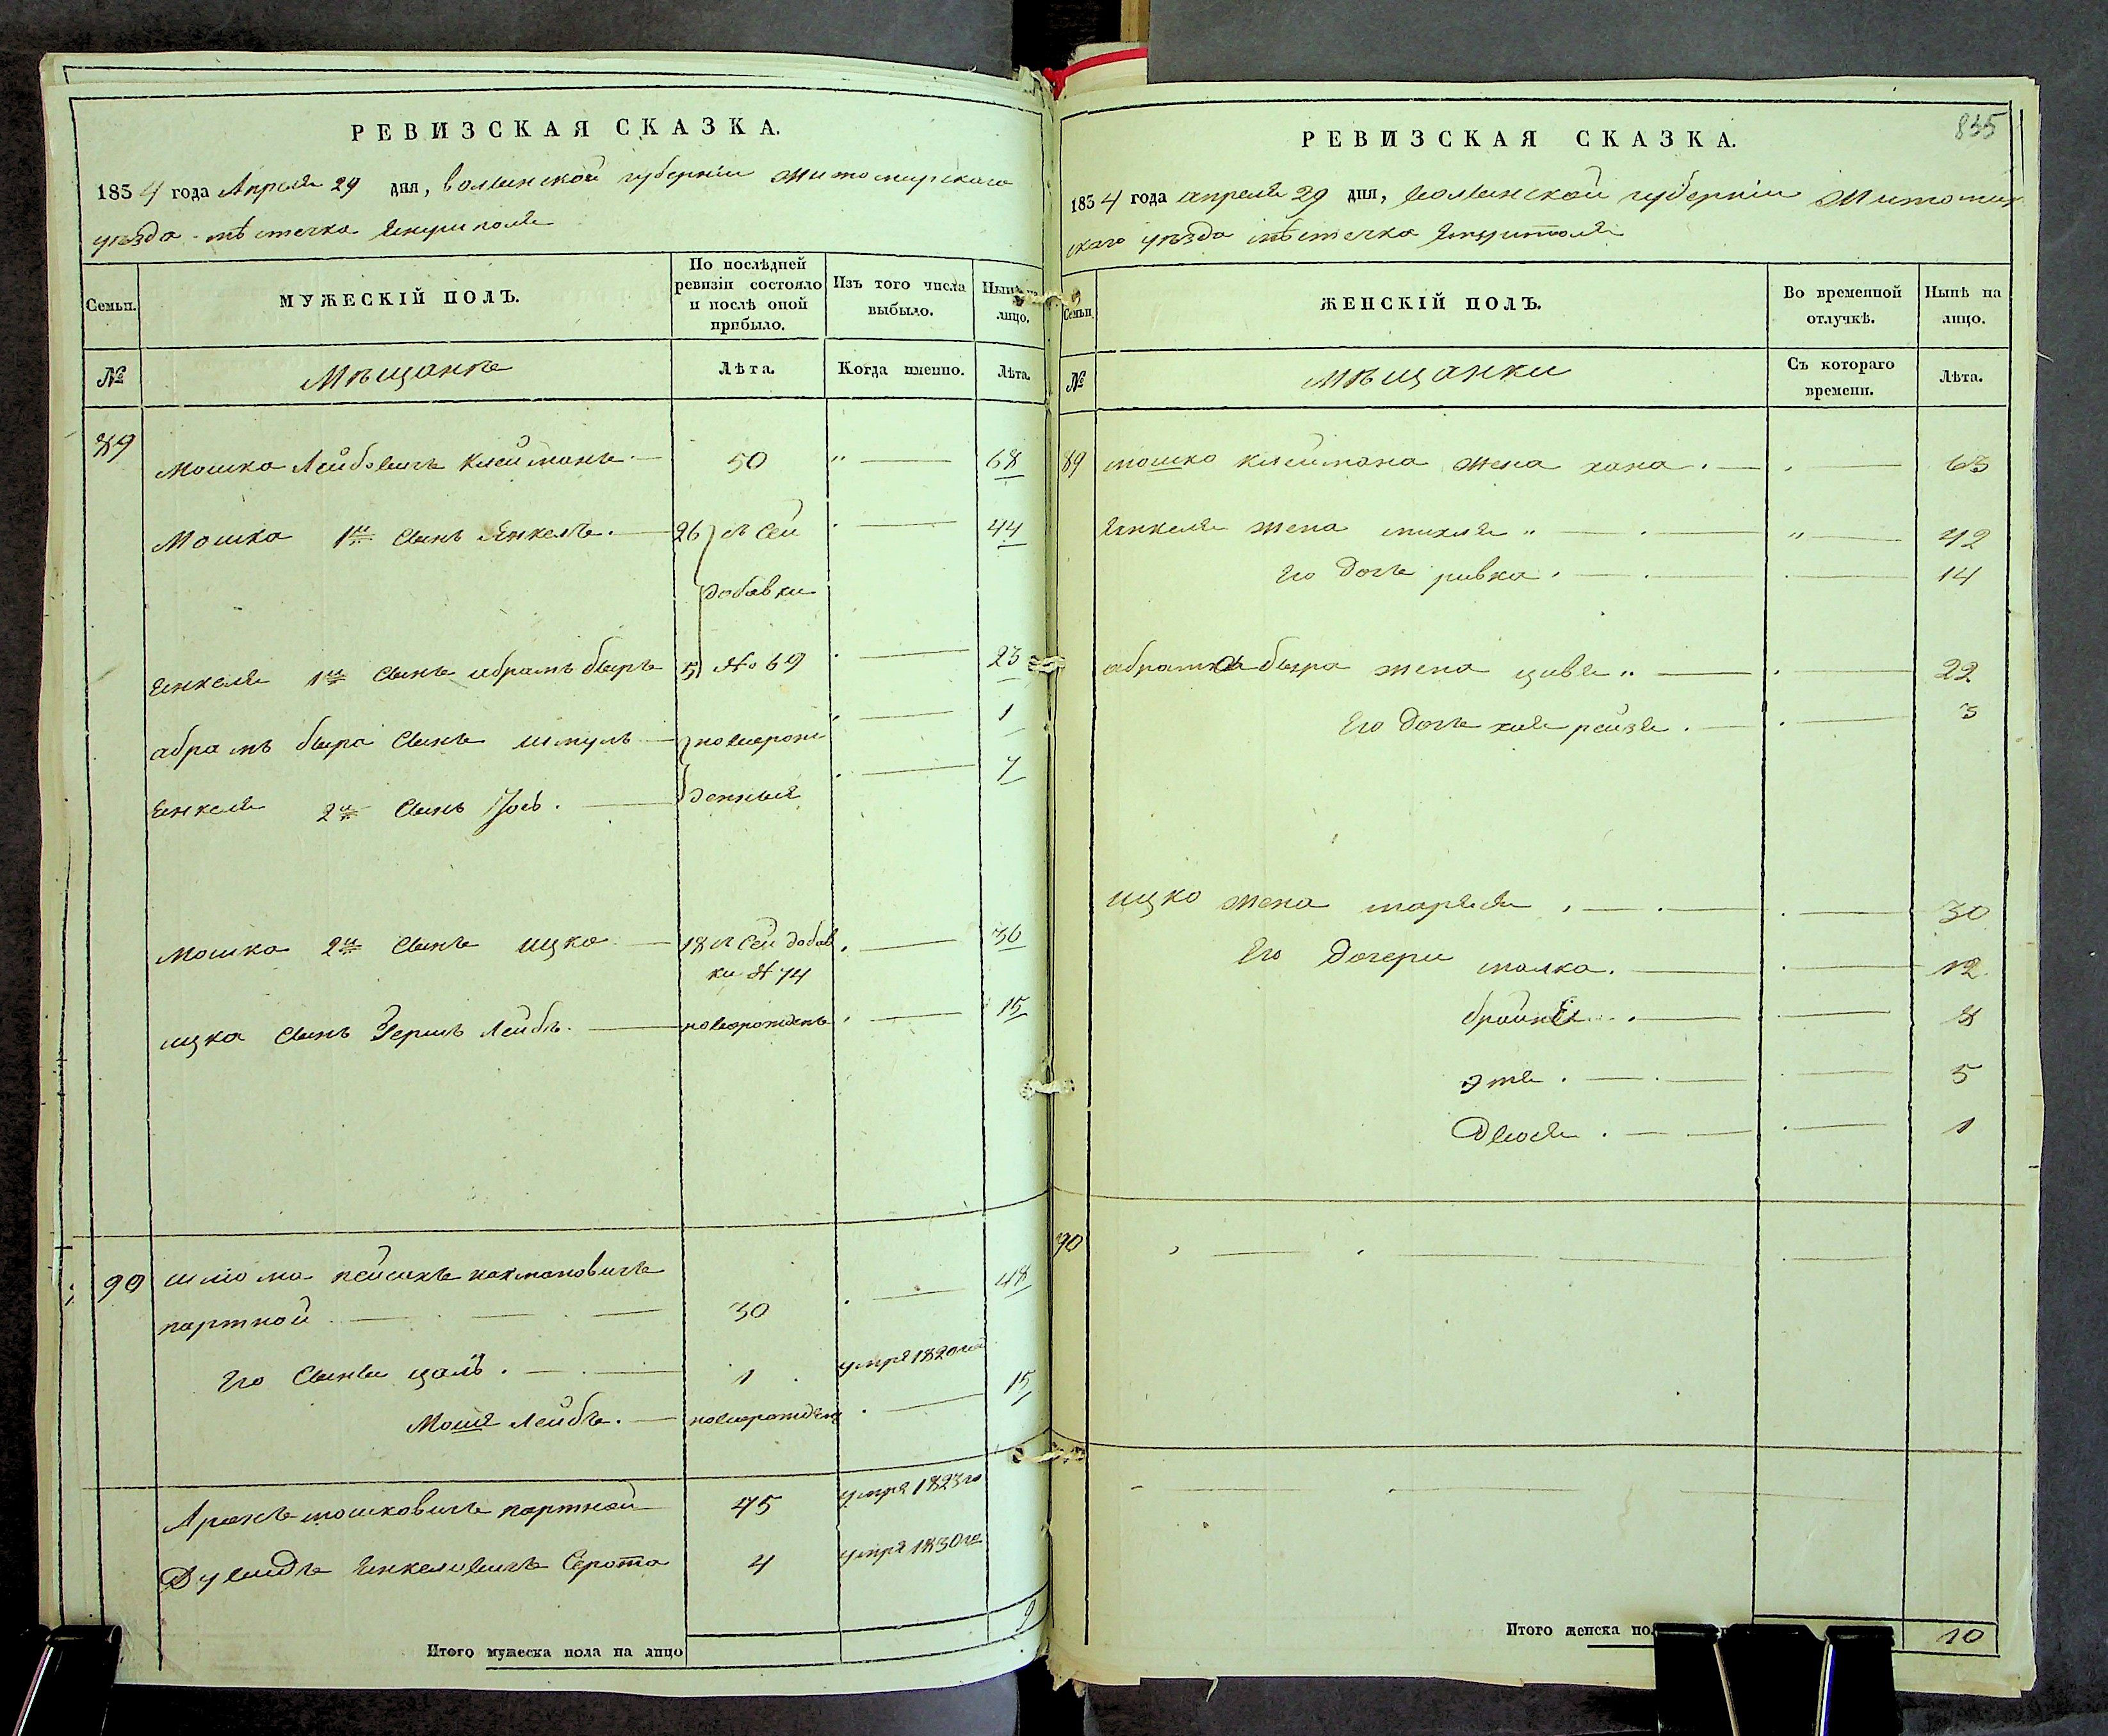 РЕВИЗСКАЯ СКАЗКА.
1834 года Апреля 29 дня, волынской губернiи житомирскаго
уѣзда мѣстечка
Семьи.
МУЖЕСКIЙ ПОЛЪ.
По послѣдней ревизiи состояло и послѣ оной прибыло.
Изъ того числа выбыло.
Нынѣ на лицо.
№
Мѣщанъ
Лѣта.
Когда именно.
Лѣта.
89 Мошко Лейбовичъ Клейманъ 50 " 68
Мошка 1й сынъ Янкель. 26 л Сей 44
добавки
Янкеля 1й сынъ абрамъ быръ 5 No 69 23
абрамъ быра сынъ шмуль новорож 1
Янкеля 2й сынъ Iось. денныя 7
мошка 2й сынъ ицко 18 л Сей добав 36
ки № 74
ицка сынъ Герш Лейбъ. новорожденъ 15
90 шлиома пейсахъ нахмановичъ
партной 30 48
его сыны цаль. 1 умре 1820го
Моше Лейбъ. новорожден 15
Аронъ мошковичъ партной 45 умре 1823го
Дувидъ Янкелевичъ Серота 4 умре 1830го
Итого мужеска пола на лицо 9
835
РЕВИЗСКАЯ СКАЗКА.
1834 года апреля 29 дня, волынской губернiи Житомир
скаго уѣзда мѣстечка
Семьи.
ЖЕНСКIЙ ПОЛЪ.
Во временной отлучкѣ.
Нынѣ на лицо.
№
мѣщанки
Съ котораго времени.
Лѣта.
89 мошко клеймана жена хана. 63
Янкеля жена михля " " 42
его дочь ривка. 14
абрама быра жена цивя " 22
Его дочь хая рейзя. 3
ицко жена 30
Его дочери малка. 12
брайна 8
этя. 5
Двося. 1
90
Итого женска пол 10